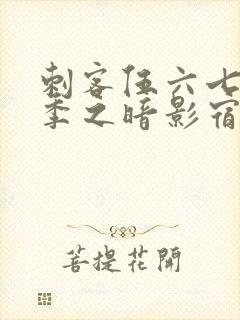 刺客伍六七
季之暗影宿
菩提花開